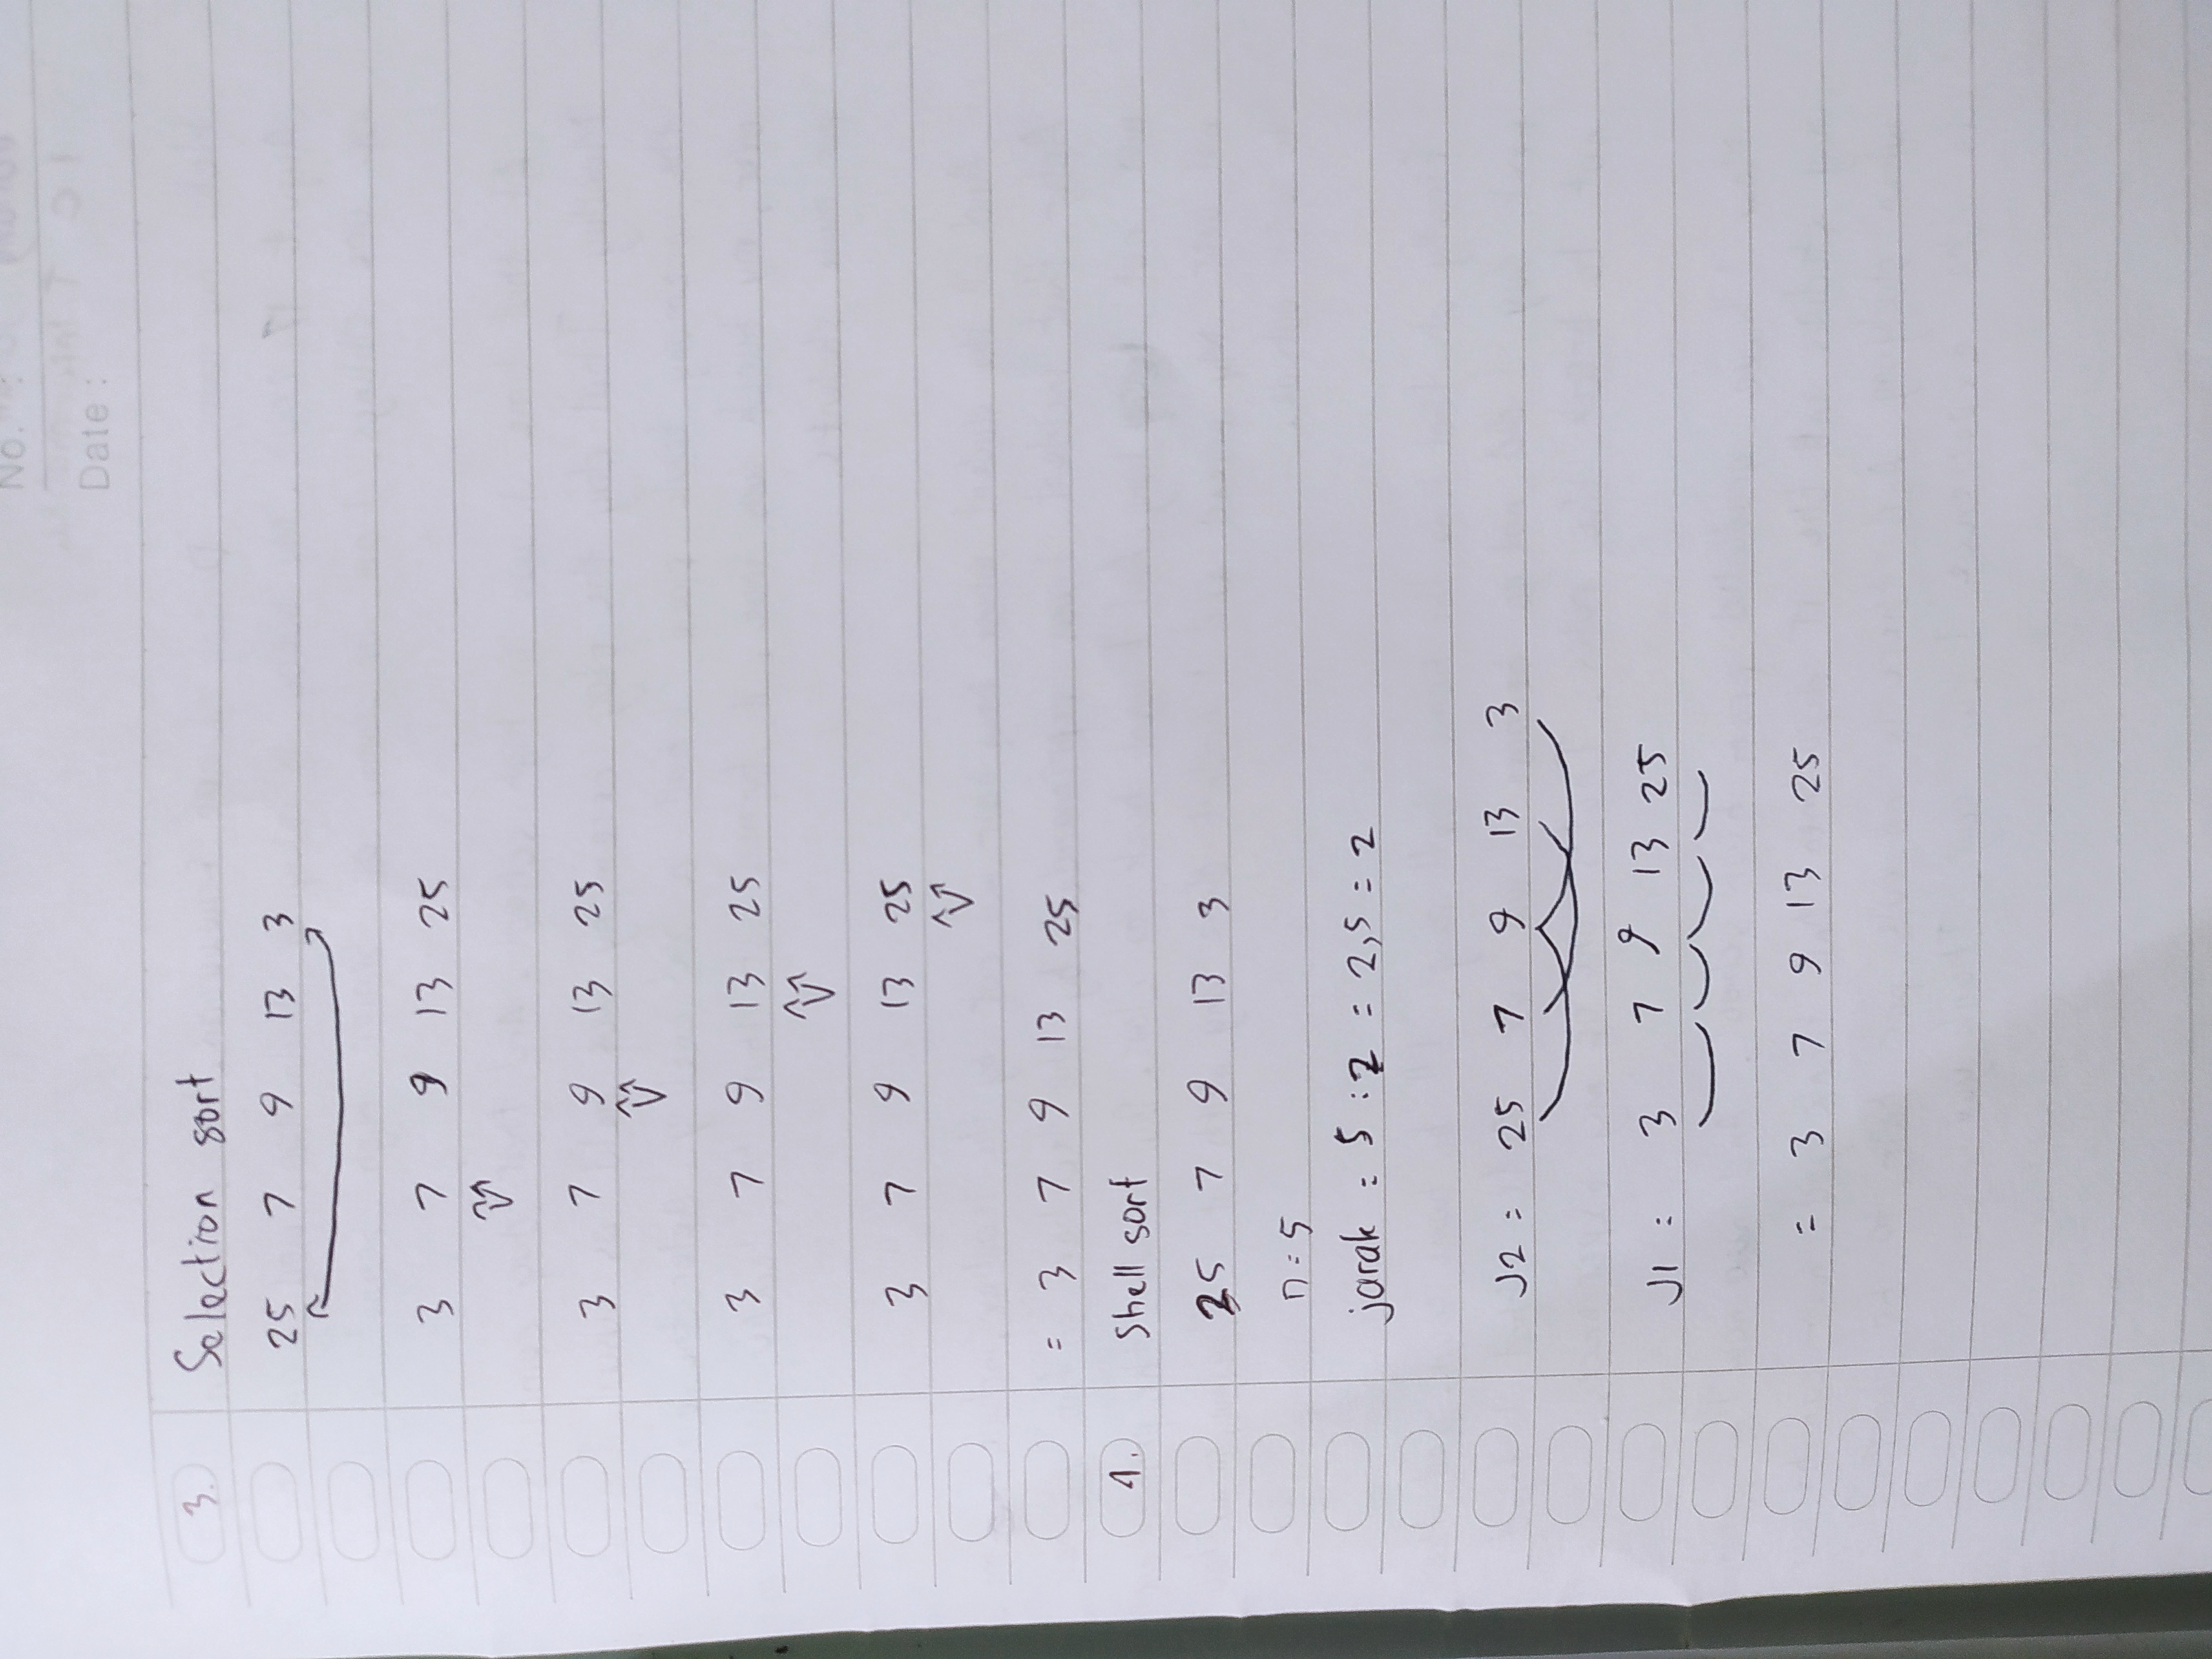 No. :
Date :
3. Selection sort
25 7 9 13 3
3 7 9 13 25
3 7 9 13 25
3 7 9 13 25
3 7 9 13 25
= 3 7 9 13 25
4. Shell sort
25 7 9 13 3
n = 5
jarak = 5 : 2 = 2,5 = 2
J2 = 25 7 9 13 3
J1 = 3 7 9 13 25
= 3 7 9 13 25